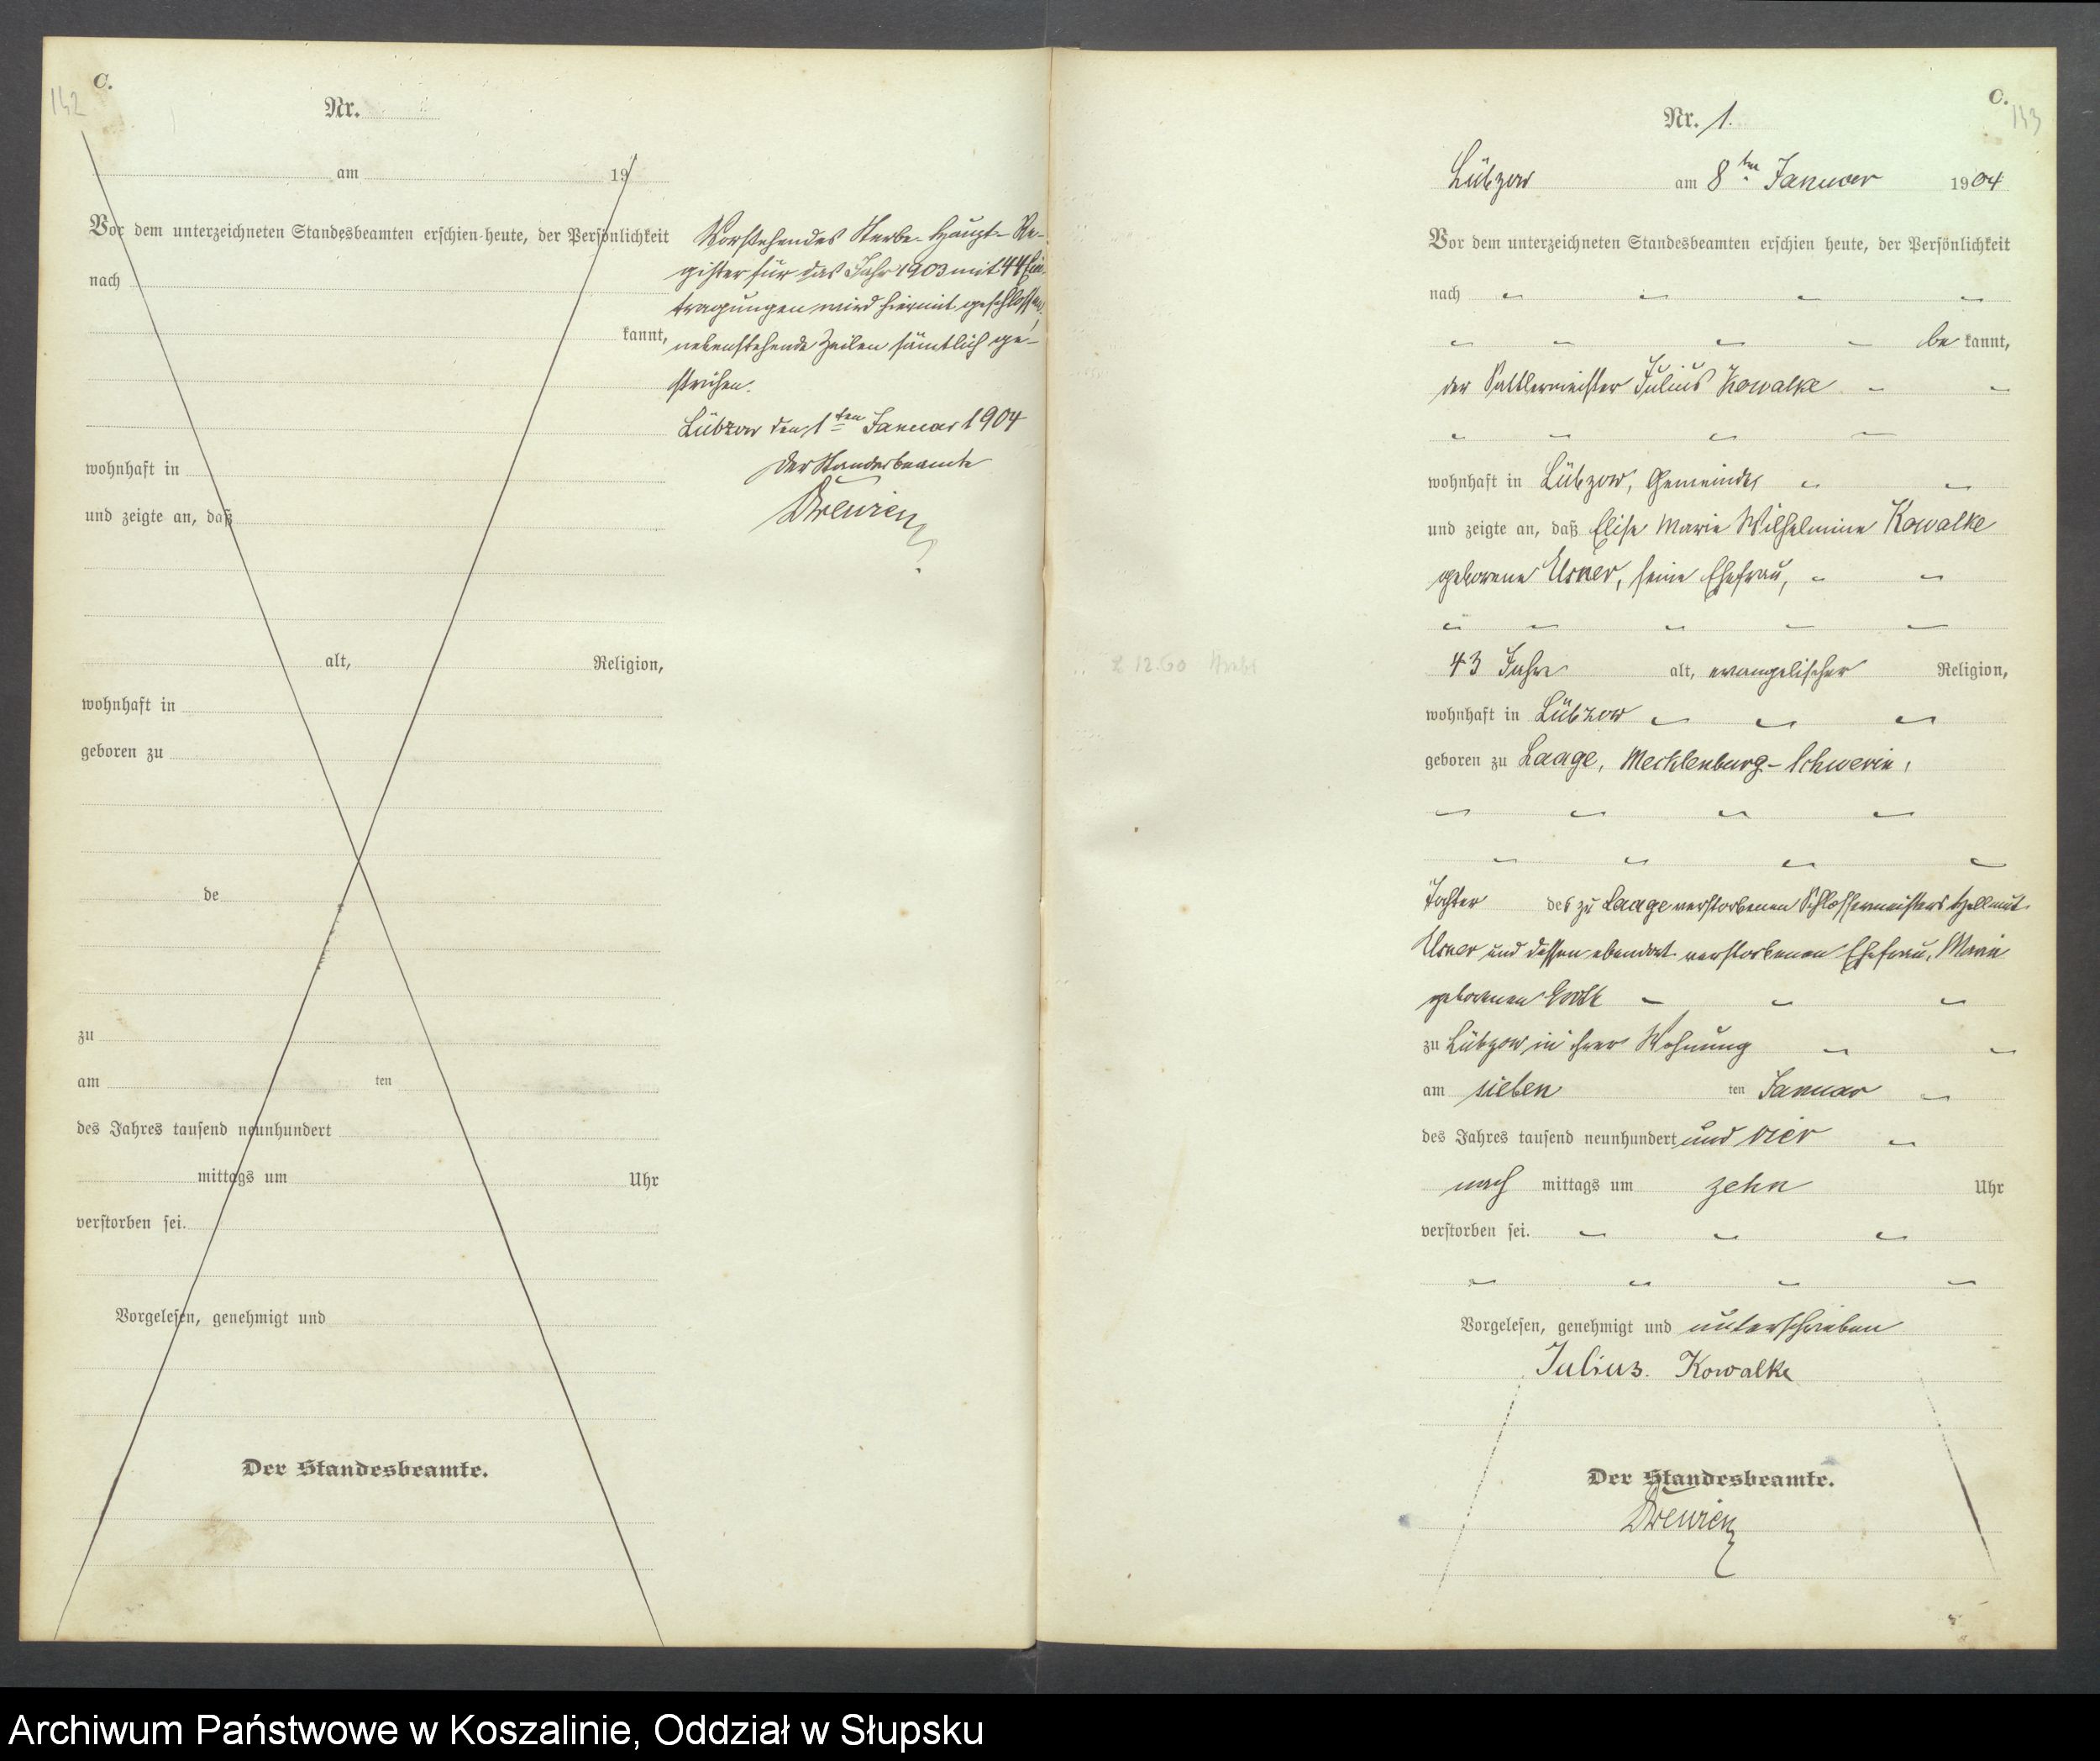 C.
142
Nr.
am 19
Vor dem unterzeichneten Standesbeamten erschien heute, der Persönlichkeit
nach
kannt,
wohnhaft in
und zeigte an, daß
alt, Religion,
wohnhaft in
geboren zu
de
zu
am ten
des Jahres tausend neunhundert
mittags um Uhr
verstorben sei.
Vorgelesen, genehmigt und
Der Standesbeamte.
Vorstehendes Sterbe-Haupt-Re-
gister für das Jahr 1903 mit 44 Ein-
tragungen wird hiermit geschlossen,
nebenstehende Zeilen sämtlich ge-
strichen.
Lübzow den 1ten Januar 1904
Der Standesbeamte
C.
143
Nr. 1.
Lübzow am 8ten Januar 1904
Vor dem unterzeichneten Standesbeamten erschien heute, der Persönlichkeit
nach
be kannt,
der Sattlermeister Julius Kowalke
wohnhaft in Lübzow, Gemeinde,
und zeigte an, daß Elise Marie Wilhelmine Kowalke
geborene, seine Ehefrau,
43 Jahre alt, evangelischer Religion,
wohnhaft in Lübzow
geboren zu Laage, Mecklenburg-Schwerin,
Tochter des zu Laage verstorbenen Schlossermeisters Hellmut
und dessen ebendort verstorbenen Ehefrau, Marie
geborenen
zu Lübzow in ihrer Wohnung
am sieben ten Januar
des Jahres tausend neunhundert und vier
nach mittags um zehn Uhr
verstorben sei.
Vorgelesen, genehmigt und unterschrieben
Julius. Kowalke
Der Standesbeamte.
Archiwum Państwowe w Koszalinie, Oddział w Słupsku